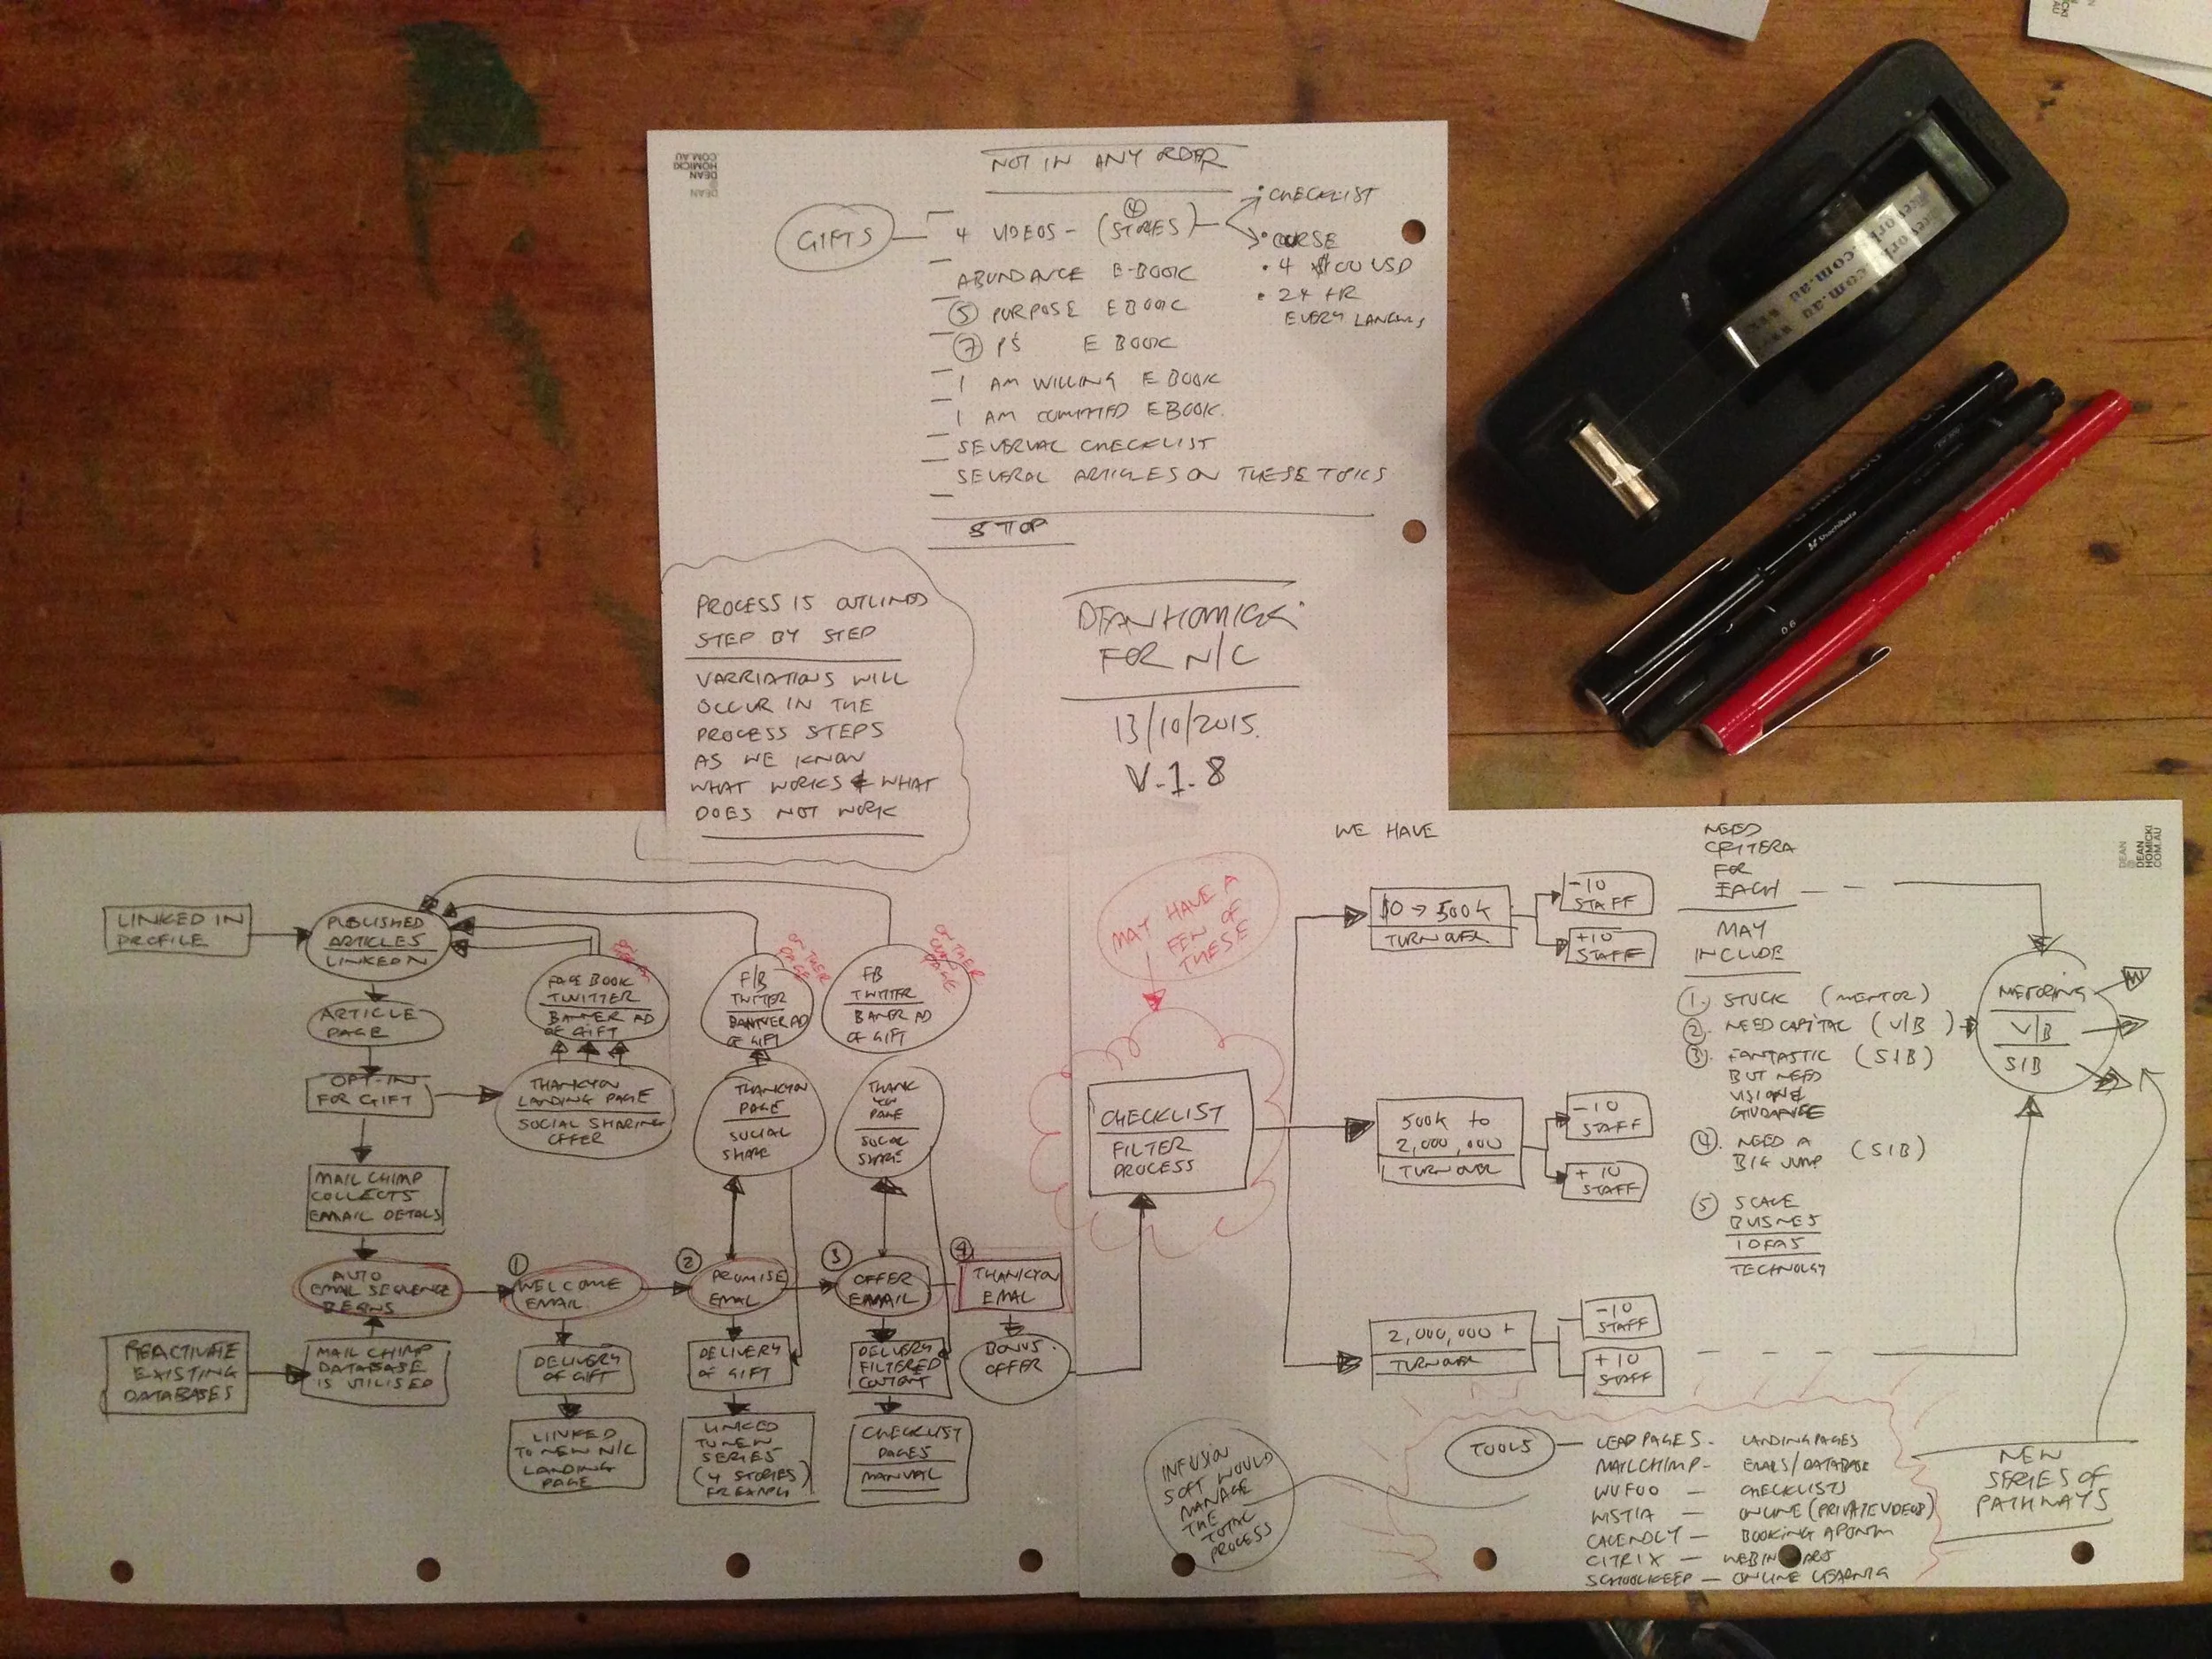 DEAN
HOMICKI
COM.AU
NOT IN ANY ORDER
GIFTS
4 VIDEOS - (STORIES)
4
• CHECKLIST
• COURSE
• 4 $00 USD
• 24 HR
EVERY
ABUNDANCE E-BOOK
5 PURPOSE EBOOK
7 P'S E BOOK
I AM WILLING E BOOK
I AM COMMITTED EBOOK.
SEVERVAL CHECKLIST
SEVERAL ARTICLES ON THESE TOPICS
STOP
PROCESS IS OUTLINED
STEP BY STEP
VARRIATIONS WILL
OCCUR IN THE
PROCESS STEPS
AS WE KNOW
WHAT WORKS & WHAT
DOES NOT WORK
DEAN HOMICKI
FOR N/C
13/10/2015.
V.1.8
LINKED IN
PROFILE
PUBLISHED
ARTICLES
LINKED N
ARTICLE
PAGE
OPT-IN
FOR GIFT
MAIL CHIMP
COLLECTS
EMAIL DETALS
AUTO
EMAIL SEQUENCE
BEGINS
REACTIVATE
EXISTING
DATABASES
MAIL CHIMP
DATABASE
IS UTILISED
FACE BOOK
TWITTER
BANNER AD
OF GIFT
THANKYOU
LANDING PAGE
SOCIAL SHARING
OFFER
F/B
TWITTER
BANNER AD
OF GIFT
ON THEIR
PAGE
THANKYOU
PAGE
SOCIAL
SHARE
FB
TWITTER
BANER AD
OF GIFT
ON THEIR
PAGE
THANK
YOU
PAGE
SOCIAL
SHARE
1
WELCOME
EMAIL.
2
PROMISE
EMAIL
3
OFFER
EMAIL
4
THANKYOU
EMAIL
DELIVERY
OF GIFT
LINKED
TO NEW N/C
LANDING
PAGE
DELIVERY
OF GIFT
LINKED
TO NEW
SERIES
(4 STORIES)
DELIVERY
FILTERED
CONTENT
CHECKLIST
PAGES
MANUAL
BONUS
OFFER
MAY HAVE A
FEW OF
THESE
CHECKLIST
FILTER
PROCESS
WE HAVE
$0 → 500k
TURNOVER
-10
STAFF
+10
STAFF
500k to
2,000,000
TURNOVER
-10
STAFF
+10
STAFF
2,000,000 +
TURNOVER
-10
STAFF
+10
STAFF
NEED
CRITERA
FOR
EACH
MAY
INCLUDE
1. STUCK (MENTOR)
2. NEED CAPITAL (V/B)
3. FANTASTIC (SIB)
BUT NEED
VISION &
GUIDANCE
4. NEED A
BIG JUMP (SIB)
5 SCALE
BUISNES
IDEAS
TECHNOLOGY
METORING
V/B
SIB
DEAN
HOMICKI
COM.AU
INFUSION
SOFT WOULD
MANAGE
THE
TOTAL
PROCESS
TOOLS
LEAD PAGES - LANDING PAGES
MAILCHIMP - EMAILS/DATABASE
WUFOO - CHECKLISTS
WISTIA - ONLINE (PRIVATE VIDEOS)
CALENDLY - BOOKING
CITRIX - WEBINARS
SCHOOLKEEP - ONLINE LEARNING
NEW
SERIES OF
PATHWAYS
0.6